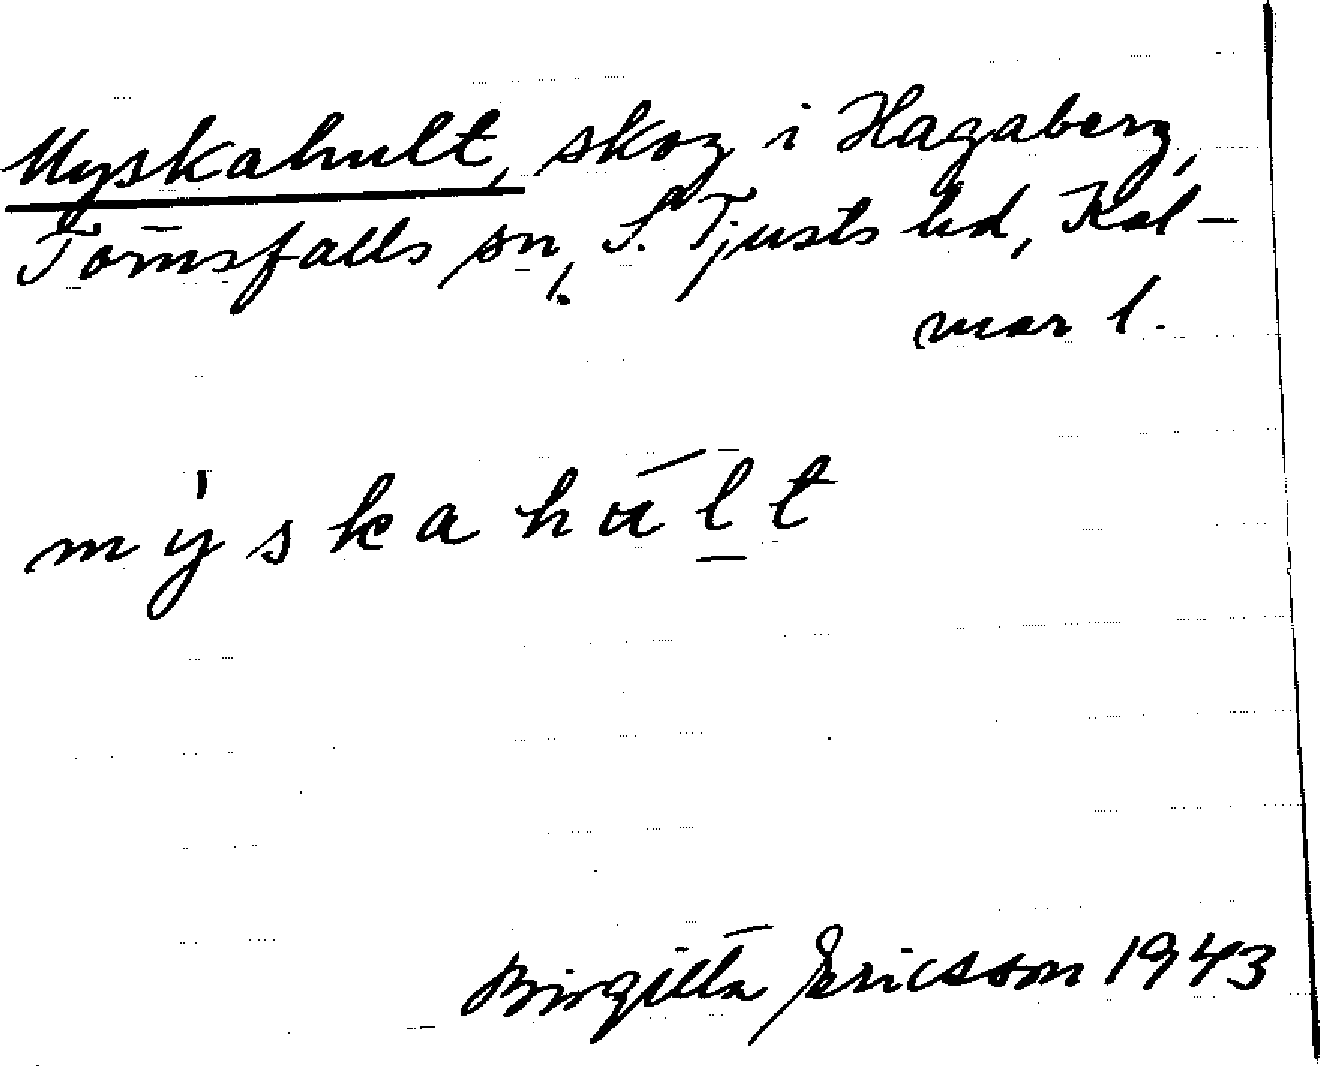 Myskahult, skog i Hagaberg,
Törnsfalls sn, S. Tjusts hd, Kal-
mar l.
mýskahu̅l̲t
Birgitta Ericsson 1943